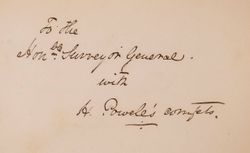 To the
Honble Surveyor General.
with
H. Powell's comfts.